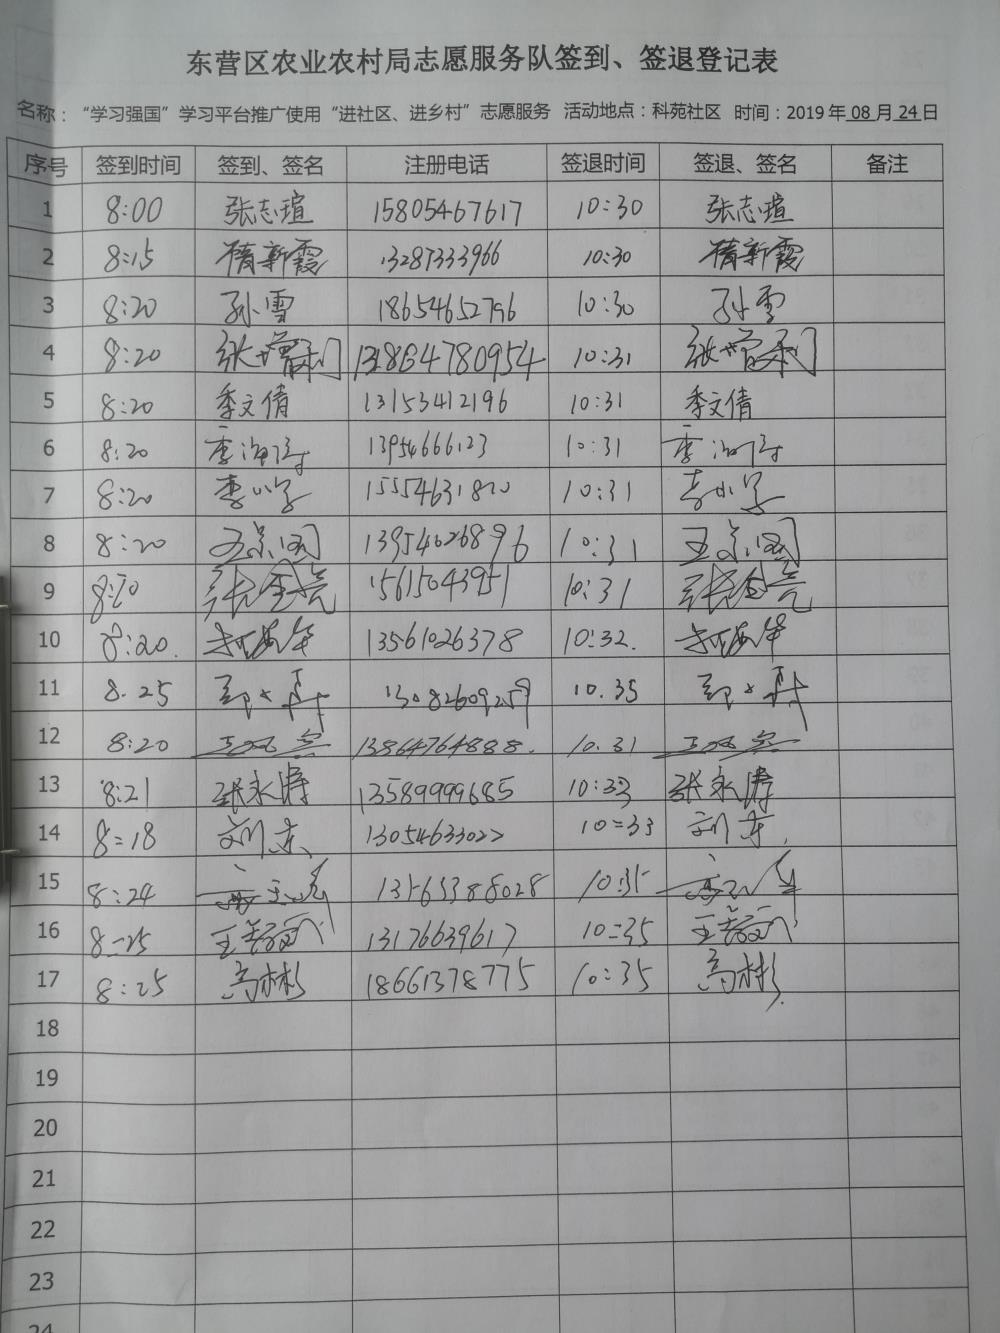 东营区农业农村局志愿服务队签到、签退登记表
名称：“学习强国”学习平台推广使用“进社区、进乡村”志愿服务 活动地点：科苑社区 时间：2019年08月24日
序号 签到时间 签到、签名 注册电话 签退时间 签退、签名 备注
1 8:00 张志瑄 15805467617 10:30 张志瑄
2 8:15 13287333966 10:30
3 8:20 孙雪 18654652796 10:30 孙雪
4 8:20 13864780954 10:31
5 8:20 季文倩 13153412196 10:31 季文倩
6 8:20 13954666123 10:31
7 8:20 李小字 15554631820 10:31 李小字
8 8:20 王京国 13954026896 10:31 王京国
9 8:20 张全亮 15615043951 10:31 张全亮
10 8:20. 13561026378 10:32.
11 8.25 13082609259 10.35
12 8:20 13864764888. 10.31
13 8:21 张永涛 13589999685 10:33 张永涛
14 8=18 刘东 13054633022 10=33 刘东
15 8:24 13165388028 10:35
16 8=25 13176639617 10=35
17 8:25 高彬彬 18661378775 10:35 高彬
18
19
20
21
22
23
24